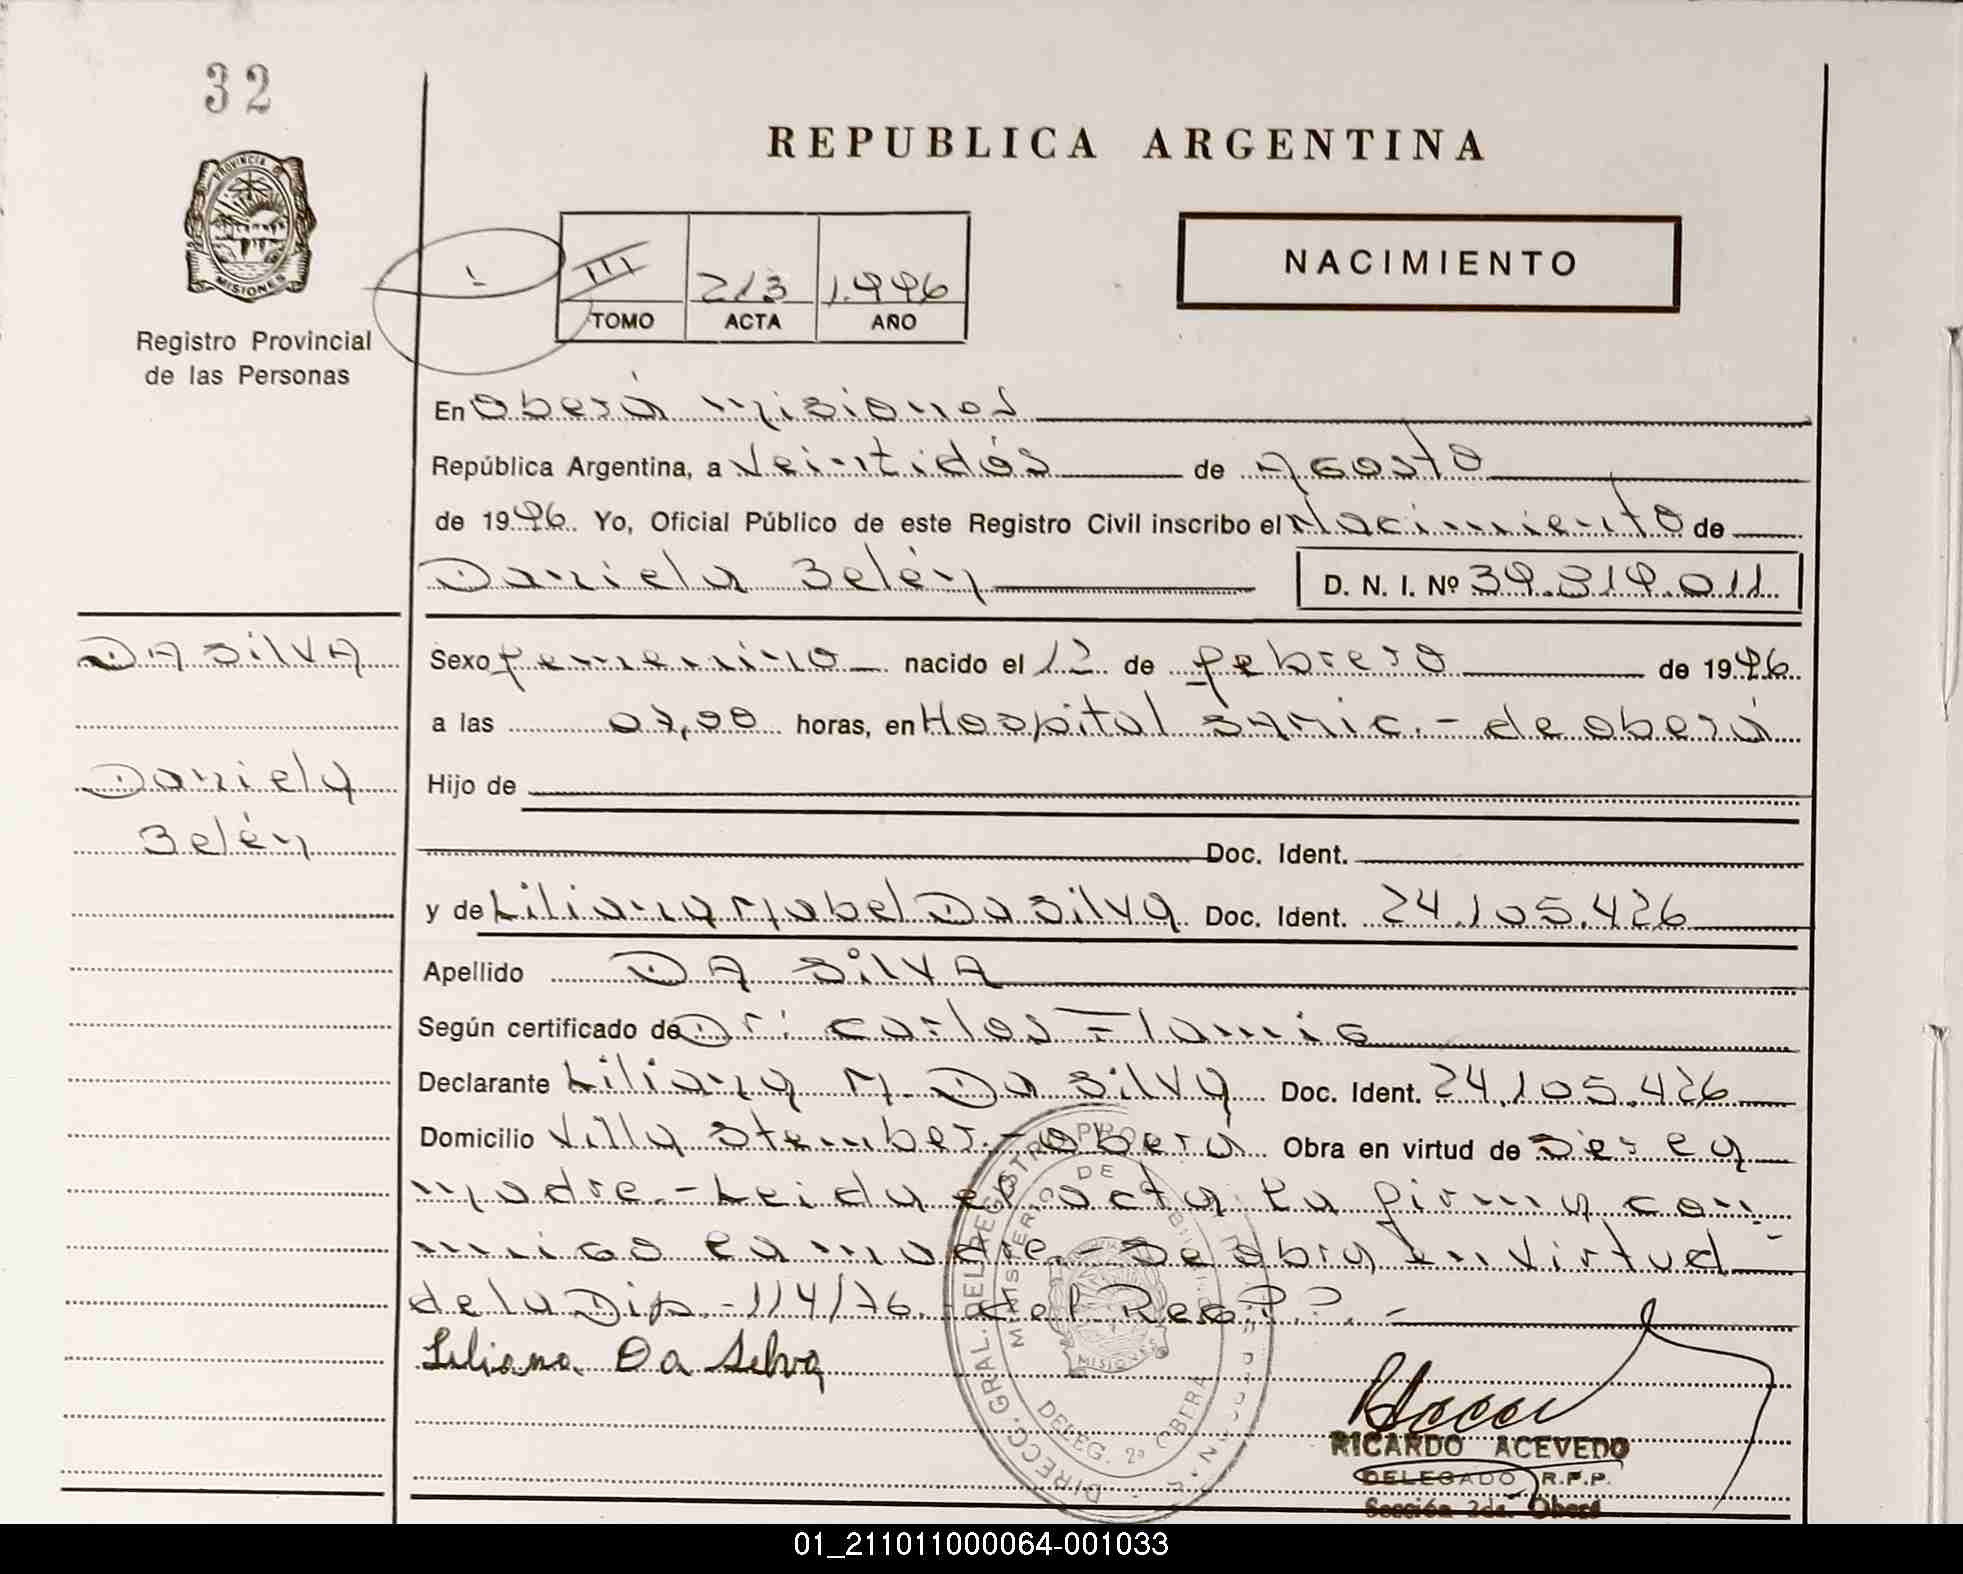 32
PROVINCIA
MISIONES
Registro Provincial
de las Personas
REPUBLICA ARGENTINA
NACIMIENTO
III 213 1.996
TOMO ACTA AÑO
En Oberá misiones
República Argentina, a Veintidós de Agosto
de 1996. Yo, Oficial Público de este Registro Civil inscribo el Nacimiento de
Daniela Belén D. N. I. Nº 39.819.011
DA SilVA
Daniela
Belén
Sexo femenino nacido el 12 de febrero de 1996.
a las 07,00 horas, en Hospital SAMIC.- de oberá
Hijo de
Doc. Ident.
y de Liliana Mabel Da Silva Doc. Ident. 24.105.426
Apellido DA SilVA
Según certificado de Dr: Carlos
Declarante Liliana M. Da Silva Doc. Ident. 24.105.426
Domicilio Villa Stember.- Oberá Obra en virtud de ser la
madre.- Leida el acta la firma con
migo la madre.- Se obra en virtud
de la Disp.- 114/76.- del
Liliana Da Silva
DIRECC. GRAL. DEL REGISTRO PRO
MINISTERIO DE
MISIONES
DELEG. 2ª OBERA
RICARDO ACEVEDO
DELEGADO R.P.P.
Sección 2da. Oberá
01_211011000064-001033